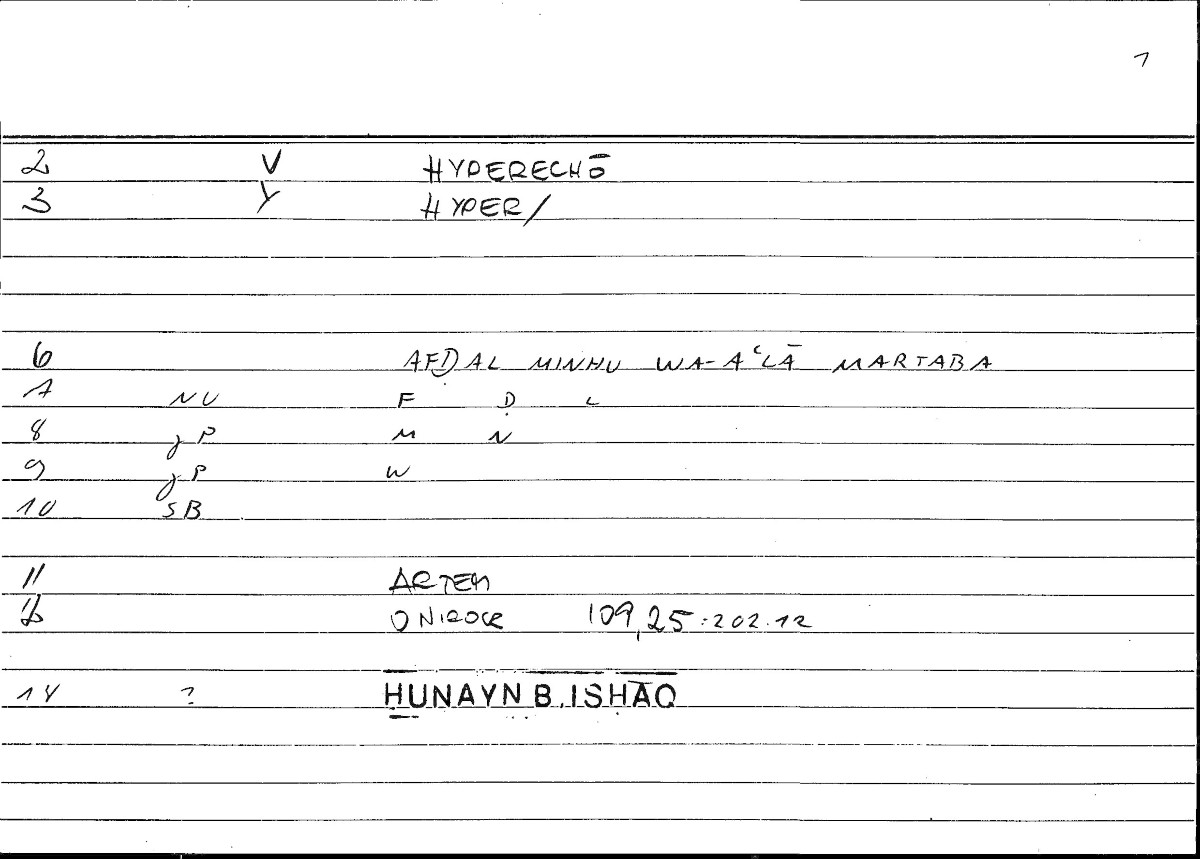 1
2 V HYPERECHŌ
3 Y HYPER/
6 AFḌAL MINHU WA-AʿLĀ MARTABA
7 NU F Ḍ L
8 jP M N
9 jP W
10 SB
11 ARTEM
12 ONIROCR 109,25:202.12
14 ? ḤUNAYN B. ISḤĀQ